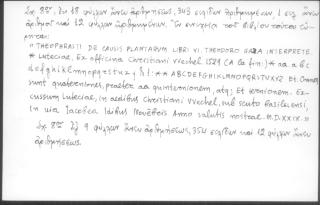 Σχ. 8ον, 2α 18 φύλλων ἄνευ ἀριθμήσεως, 343 σελίδων ἠριθμημένων, 1 σελ. ἄνευ
ἀριθμοῦ καὶ 12 φύλλων ἀριθμημένων. Ἐν
"THEOPHRASTI DE CAUSIS PLANTARUM LIBRI VI. THEODORO GAZA INTERPRETE.
* Luteciae, Ex officina Christiani Wechel 1529 (A la fin:) * aa a b c
d e f g h i k l m n o p q r s t u x y z * ** A B C D E F G H I K L M N O P Q R S T V X Y Z Et Omnes
sunt quaterniones, praeter aa quinternionem, atq; et ternionem. Ex-
cussum Luteciae, in aedibus Christiani Wechel, sub scuto Basileiensi,
in via Iacobea Idibus Novēbris Anno salutis nostrae. M.D.XXIX.»
Σχ. 8ον 2α 9 φύλλων ἄνευ ἀριθμήσεως, 354 σελίδων καὶ 12 φύλλων ἄνευ
ἀριθμήσεως.